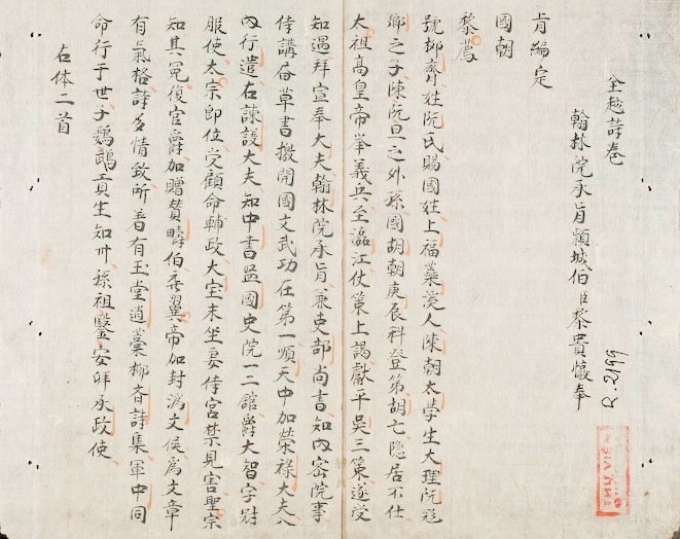 全越詩卷
翰林院承旨頴城伯臣黎貴惇奉
旨編定
國朝
黎廌
號抑齋姓阮氏賜國姓上福蘂溪人陳朝太學生大理阮飛
卿之子陳阮旦之外孫國胡朝庚辰科登第胡亡隐居不仕
太祖高皇帝举義兵至瀘江仗策上謁獻平吳三策遂受
知遇拜宣奉大夫翰林院承旨兼吏部尚書知内密院事
侍講居草書撽開國文武功在第一順天中加榮禄大夫入
内行遣右諫議大夫知中書监國史院一二館爵大智字冠
服使太宗即位受顧命輔政大宝末坐妾侍宮禁見害聖宗
知其冤復官爵加贈賛疇伯帝加封濟文侯爲文章
有氣格詩多情致所着有玉堂遺藁抑斉詩集軍中同
命行于世子鸚鵡真生知卅孫祖鑒安拜承政使
右体二首
R.2199
THU VIEN